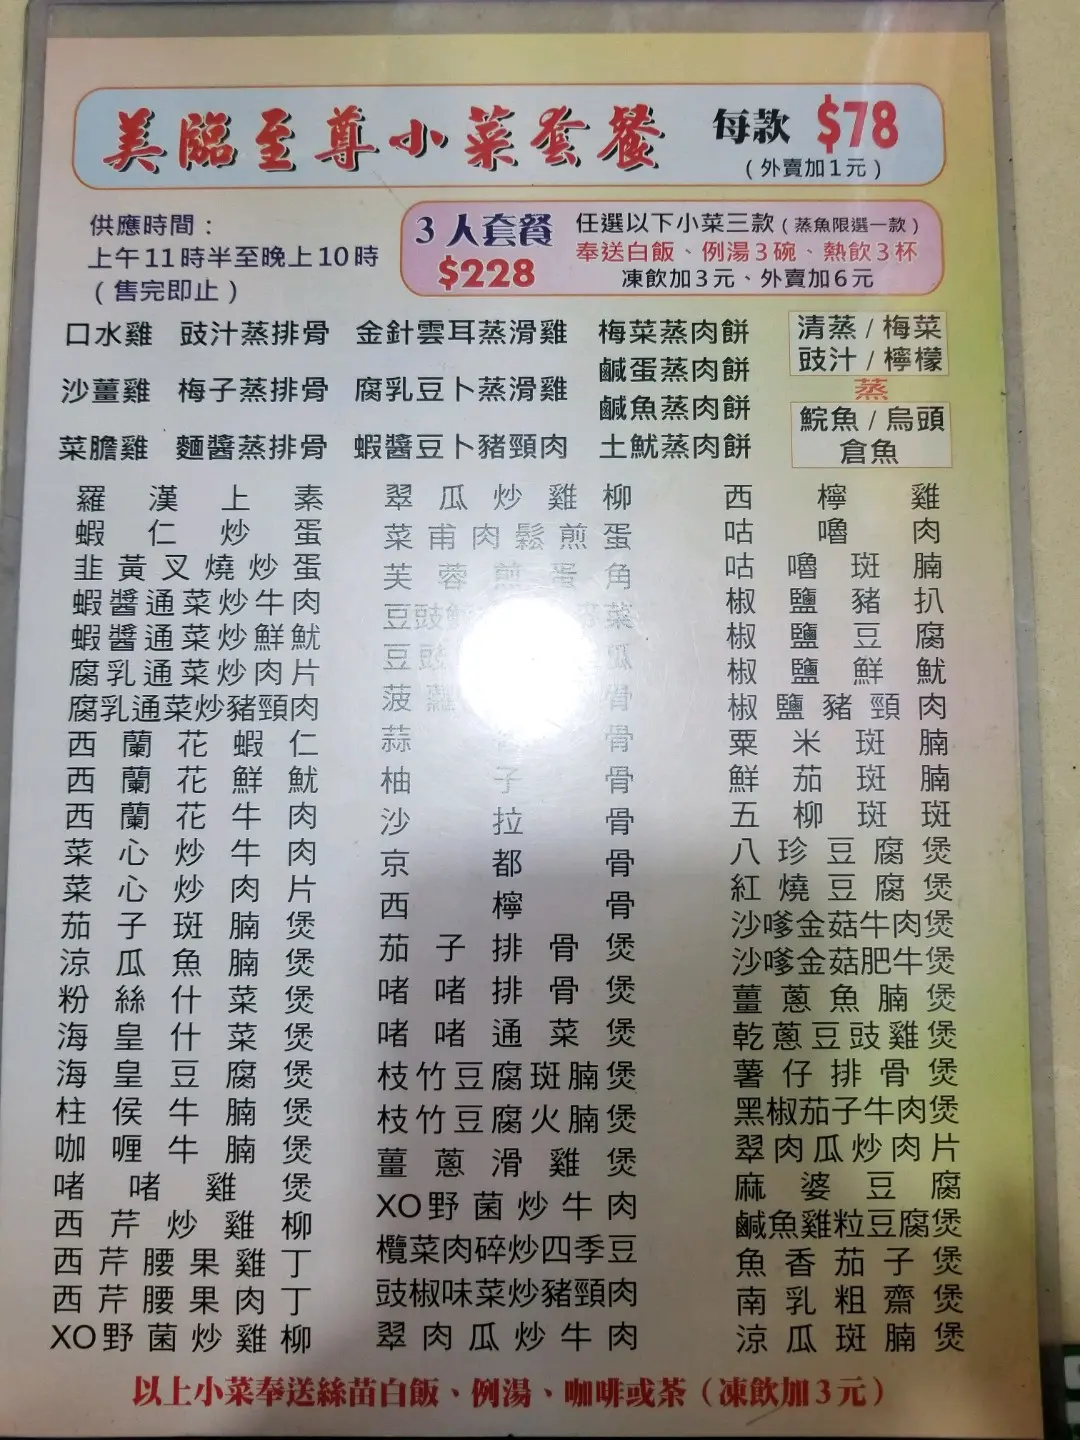 美臨至尊小菜套餐
每款 $78
(外賣加1元)
供應時間：
上午11時半至晚上10時
(售完即止)
3人套餐
$228
任選以下小菜三款(蒸魚限選一款)
奉送白飯、例湯3碗、熱飲3杯
凍飲加3元、外賣加6元
口水雞 豉汁蒸排骨 金針雲耳蒸滑雞
沙薑雞 梅子蒸排骨 腐乳豆卜蒸滑雞
菜膽雞 麵醬蒸排骨 蝦醬豆卜豬頸肉
梅菜蒸肉餅
鹹蛋蒸肉餅
鹹魚蒸肉餅
土魷蒸肉餅
清蒸/梅菜
豉汁/檸檬
蒸
鯇魚/烏頭
倉魚
羅漢上素
蝦仁炒蛋
韭黃叉燒炒蛋
蝦醬通菜炒牛肉
蝦醬通菜炒鮮魷
腐乳通菜炒肉片
腐乳通菜炒豬頸肉
西蘭花蝦仁
西蘭花鮮魷
西蘭花牛肉
菜心炒牛肉
菜心炒肉片
茄子斑腩煲
涼瓜魚腩煲
粉絲什菜煲
海皇什菜煲
海皇豆腐煲
柱侯牛腩煲
咖喱牛腩煲
啫啫雞煲
西芹炒雞柳
西芹腰果雞丁
西芹腰果肉丁
XO野菌炒雞柳
翠瓜炒雞柳
菜甫肉鬆煎蛋
芙蓉煎蛋角
豆豉 菜
豆豉 瓜
菠蘿 骨
蒜 骨
柚子骨
沙拉骨
京都骨
西檸骨
茄子排骨煲
啫啫排骨煲
啫啫通菜煲
枝竹豆腐斑腩煲
枝竹豆腐火腩煲
薑蔥滑雞煲
XO野菌炒牛肉
欖菜肉碎炒四季豆
豉椒味菜炒豬頸肉
翠肉瓜炒牛肉
西檸雞
咕嚕肉
咕嚕斑腩
椒鹽豬扒
椒鹽豆腐
椒鹽鮮魷
椒鹽豬頸肉
粟米斑腩
鮮茄斑腩
五柳斑斑
八珍豆腐煲
紅燒豆腐煲
沙嗲金菇牛肉煲
沙嗲金菇肥牛煲
薑蔥魚腩煲
乾蔥豆豉雞煲
薯仔排骨煲
黑椒茄子牛肉煲
翠肉瓜炒肉片
麻婆豆腐
鹹魚雞粒豆腐煲
魚香茄子煲
南乳粗齋煲
涼瓜斑腩煲
以上小菜奉送絲苗白飯、例湯、咖啡或茶(凍飲加3元)